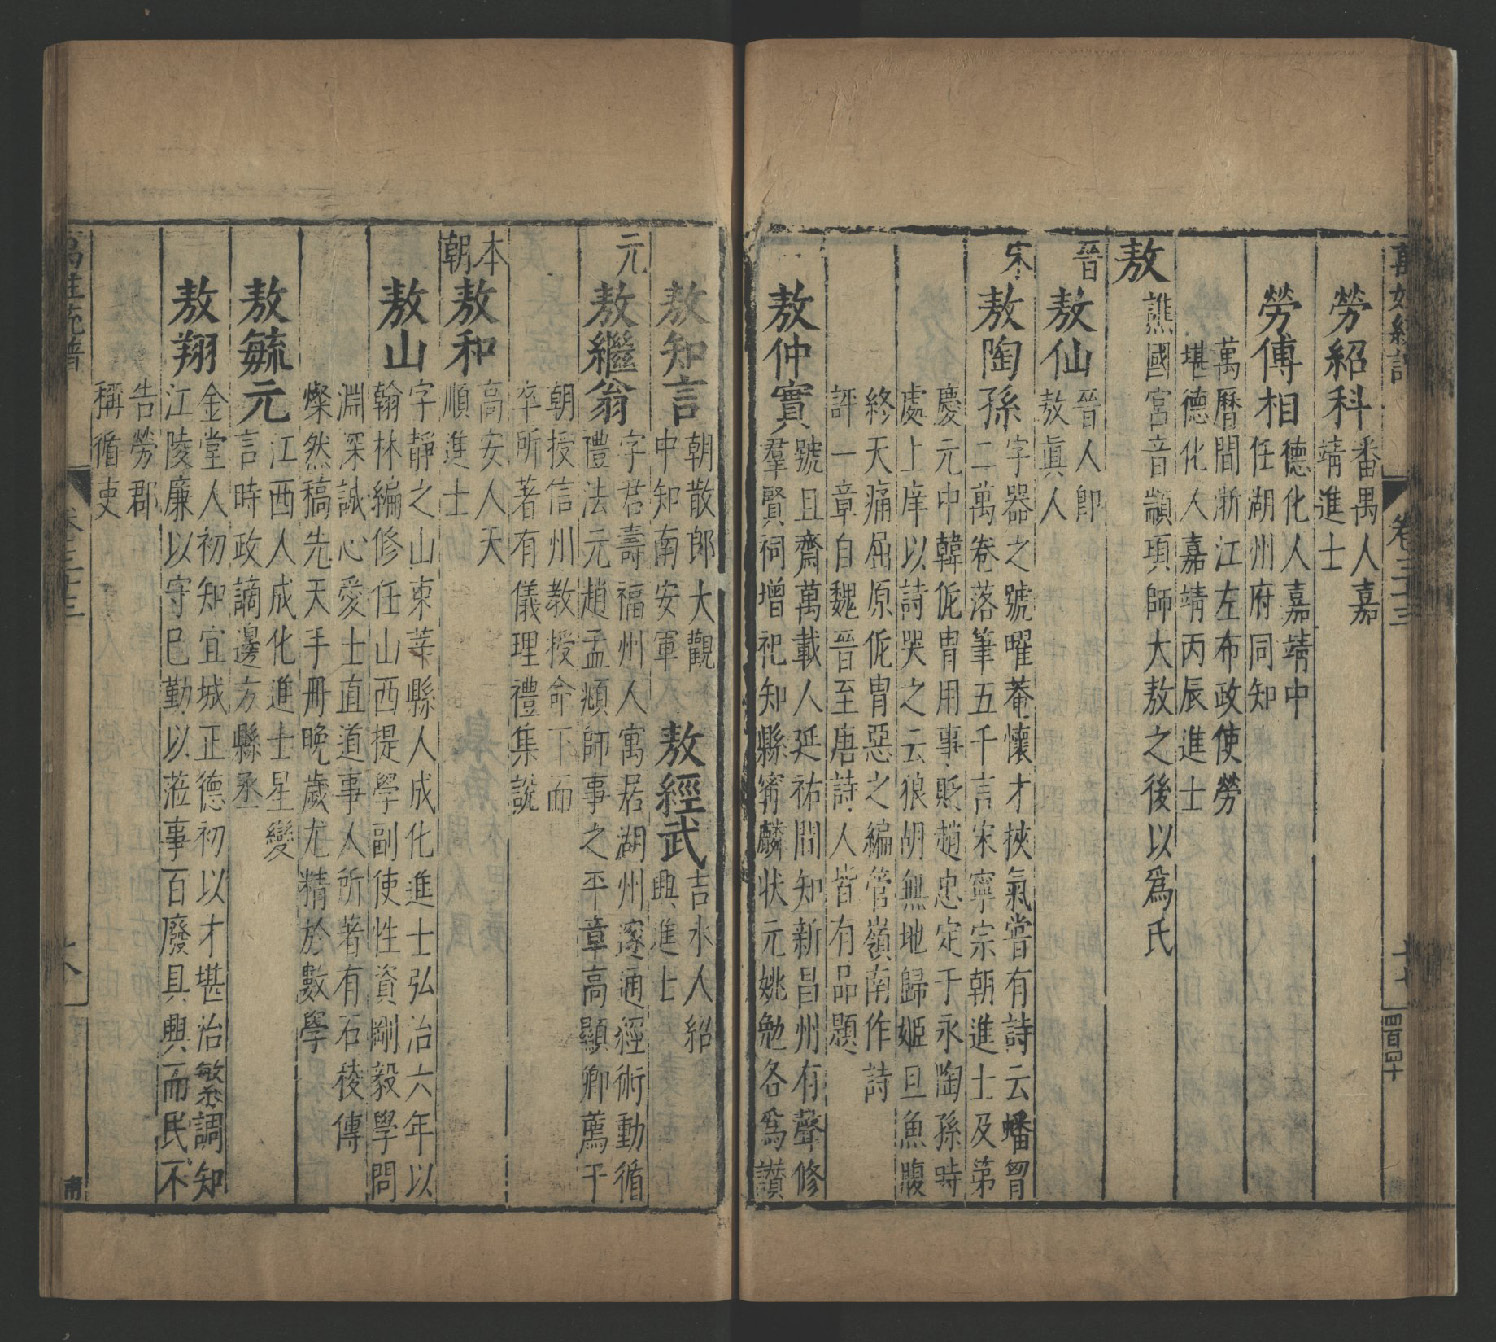 萬姓統譜
卷三十三
四百四十
勞紹科
番禺人嘉
靖進士
勞傅相
德化人嘉靖中
任湖州府同知
萬曆間浙江左布政使勞
堪德化人嘉靖丙辰進士
敖
譙國宮音顓頊師大敖之後以為氏
晉
敖仙
晉人即
敖真人
宋
敖陶孫
字器之號曜菴懷才挾氣嘗有詩云蟠胷
二萬卷落筆五千言宋寧宗朝進士及第
慶元中韓侂胄用事貶趙忠定于永陶孫時
處上庠以詩哭之云狼胡無地歸姬旦魚腹
終天痛屈原侂胄惡之編管嶺南作詩
評一章自魏晉至唐詩人皆有品題
敖仲實
號且齋萬載人延祐間知新昌州有聲修
羣賢祠增祀知縣窜麟狀元姚勉各為讃
敖知言
朝散郎大觀
中知南安軍
敖經武
吉水人紹
興進士
元
敖繼翁
字君壽福州人寓居湖州邃通經術動循
禮法元趙孟頫師事之平章高顯卿薦于
朝授信州教授命下而
卒所著有儀理禮集說
本朝
敖和
高安人天
順進士
敖山
字靜之山東莘縣人成化進士弘治六年以
翰林編修任山西提學副使性資剛毅學問
淵深誠心愛士直道事人所著有石稜傳
燦然稿先天手冊晚歲尤精於數學
敖毓元
江西人成化進士星變
言時政謫邊方縣丞
敖翔
金堂人初知宜城正德初以才堪治繁敏調知
江陵廉以守巳勤以蒞事百廢具興而民不
告勞郡
稱循吏
萬姓統譜
卷三十三
南